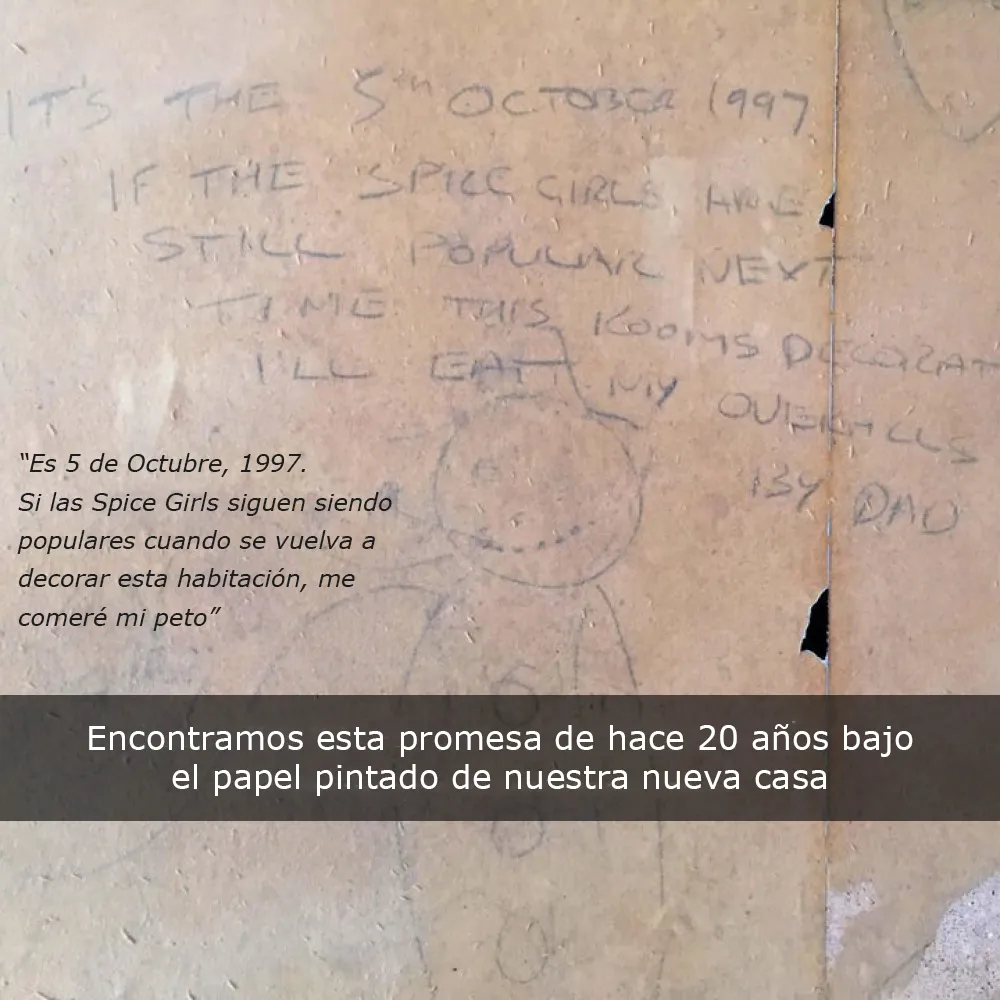 IT'S THE 5th OCTOBER 1997
IF THE SPICE GIRLS ARE
STILL POPULAR NEXT
TIME THIS ROOMS DECORAT
I'LL EAT MY OVERALLS
BY DAD
“Es 5 de Octubre, 1997.
Si las Spice Girls siguen siendo
populares cuando se vuelva a
decorar esta habitación, me
comeré mi peto”
Encontramos esta promesa de hace 20 años bajo
el papel pintado de nuestra nueva casa